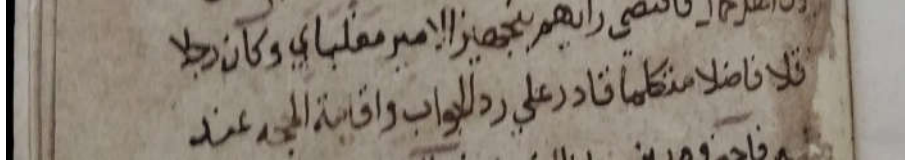 فاقتضى رايهم بتجهيز الامير مغلباي وكان رجلا
فاضلا متكلما قادر علي رد الجواب واقامة الحجه عند